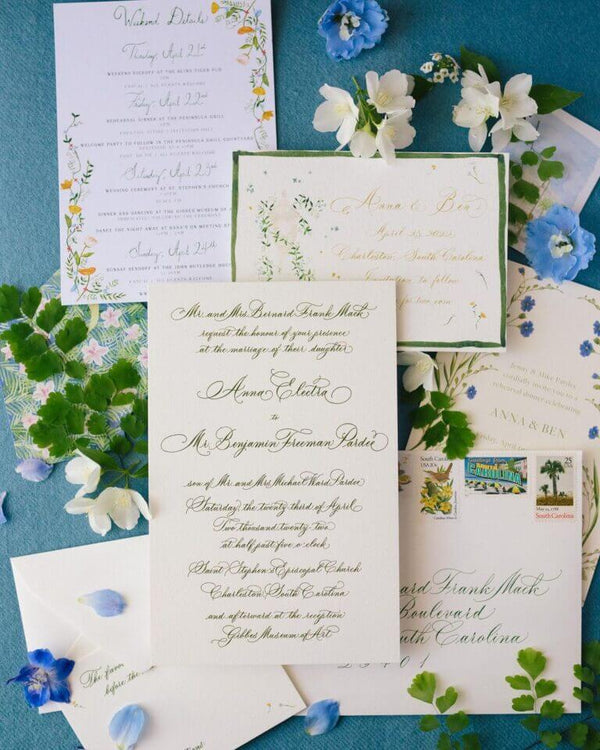 Weekend Details
Thursday, April 21st
WEEKEND KICKOFF AT THE BLIND TIGER PUB
Friday, April 22nd
REHEARSAL DINNER AT THE PENINSULA GRILL
WELCOME PARTY TO FOLLOW IN THE PENINSULA GRILL COURTYARD
Saturday, April 23rd
WEDDING CEREMONY AT ST. STEPHEN'S CHURCH
DINNER AND DANCING AT THE GIBBES MUSEUM OF
DANCE THE NIGHT AWAY AT
Sunday, April 24th
SUNDAY SENDOFF AT THE JOHN RUTLEDGE HOUSE
Anna & Ben
April 23, 2022
Charleston, South Carolina
Invitation to follow
Mr. and Mrs. Bernard Frank Mack
request the honour of your presence
at the marriage of their daughter
Anna Electra
to
Mr. Benjamin Freeman Pardee
son of Mr. and Mrs. Michael Ward Pardee
Saturday, the twenty third of April
Two thousand twenty-two
at half past five o'clock
Saint Stephen's Episcopal Church
Charleston, South Carolina
and afterward at the reception
Gibbes Museum of Art
Jenny & Mike Pardee
cordially invite you to a
rehearsal dinner celebrating
ANNA & BEN
Friday, April
South Carolina
CAROLINA
25
USA
South Carolina
Frank Mack
Boulevard
South Carolina
29401
The favor
before the